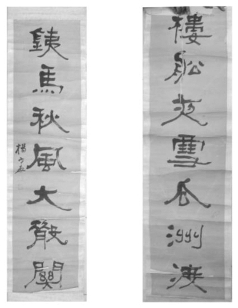 樓舩夜雪瓜洲渡
銕馬秋風大散關